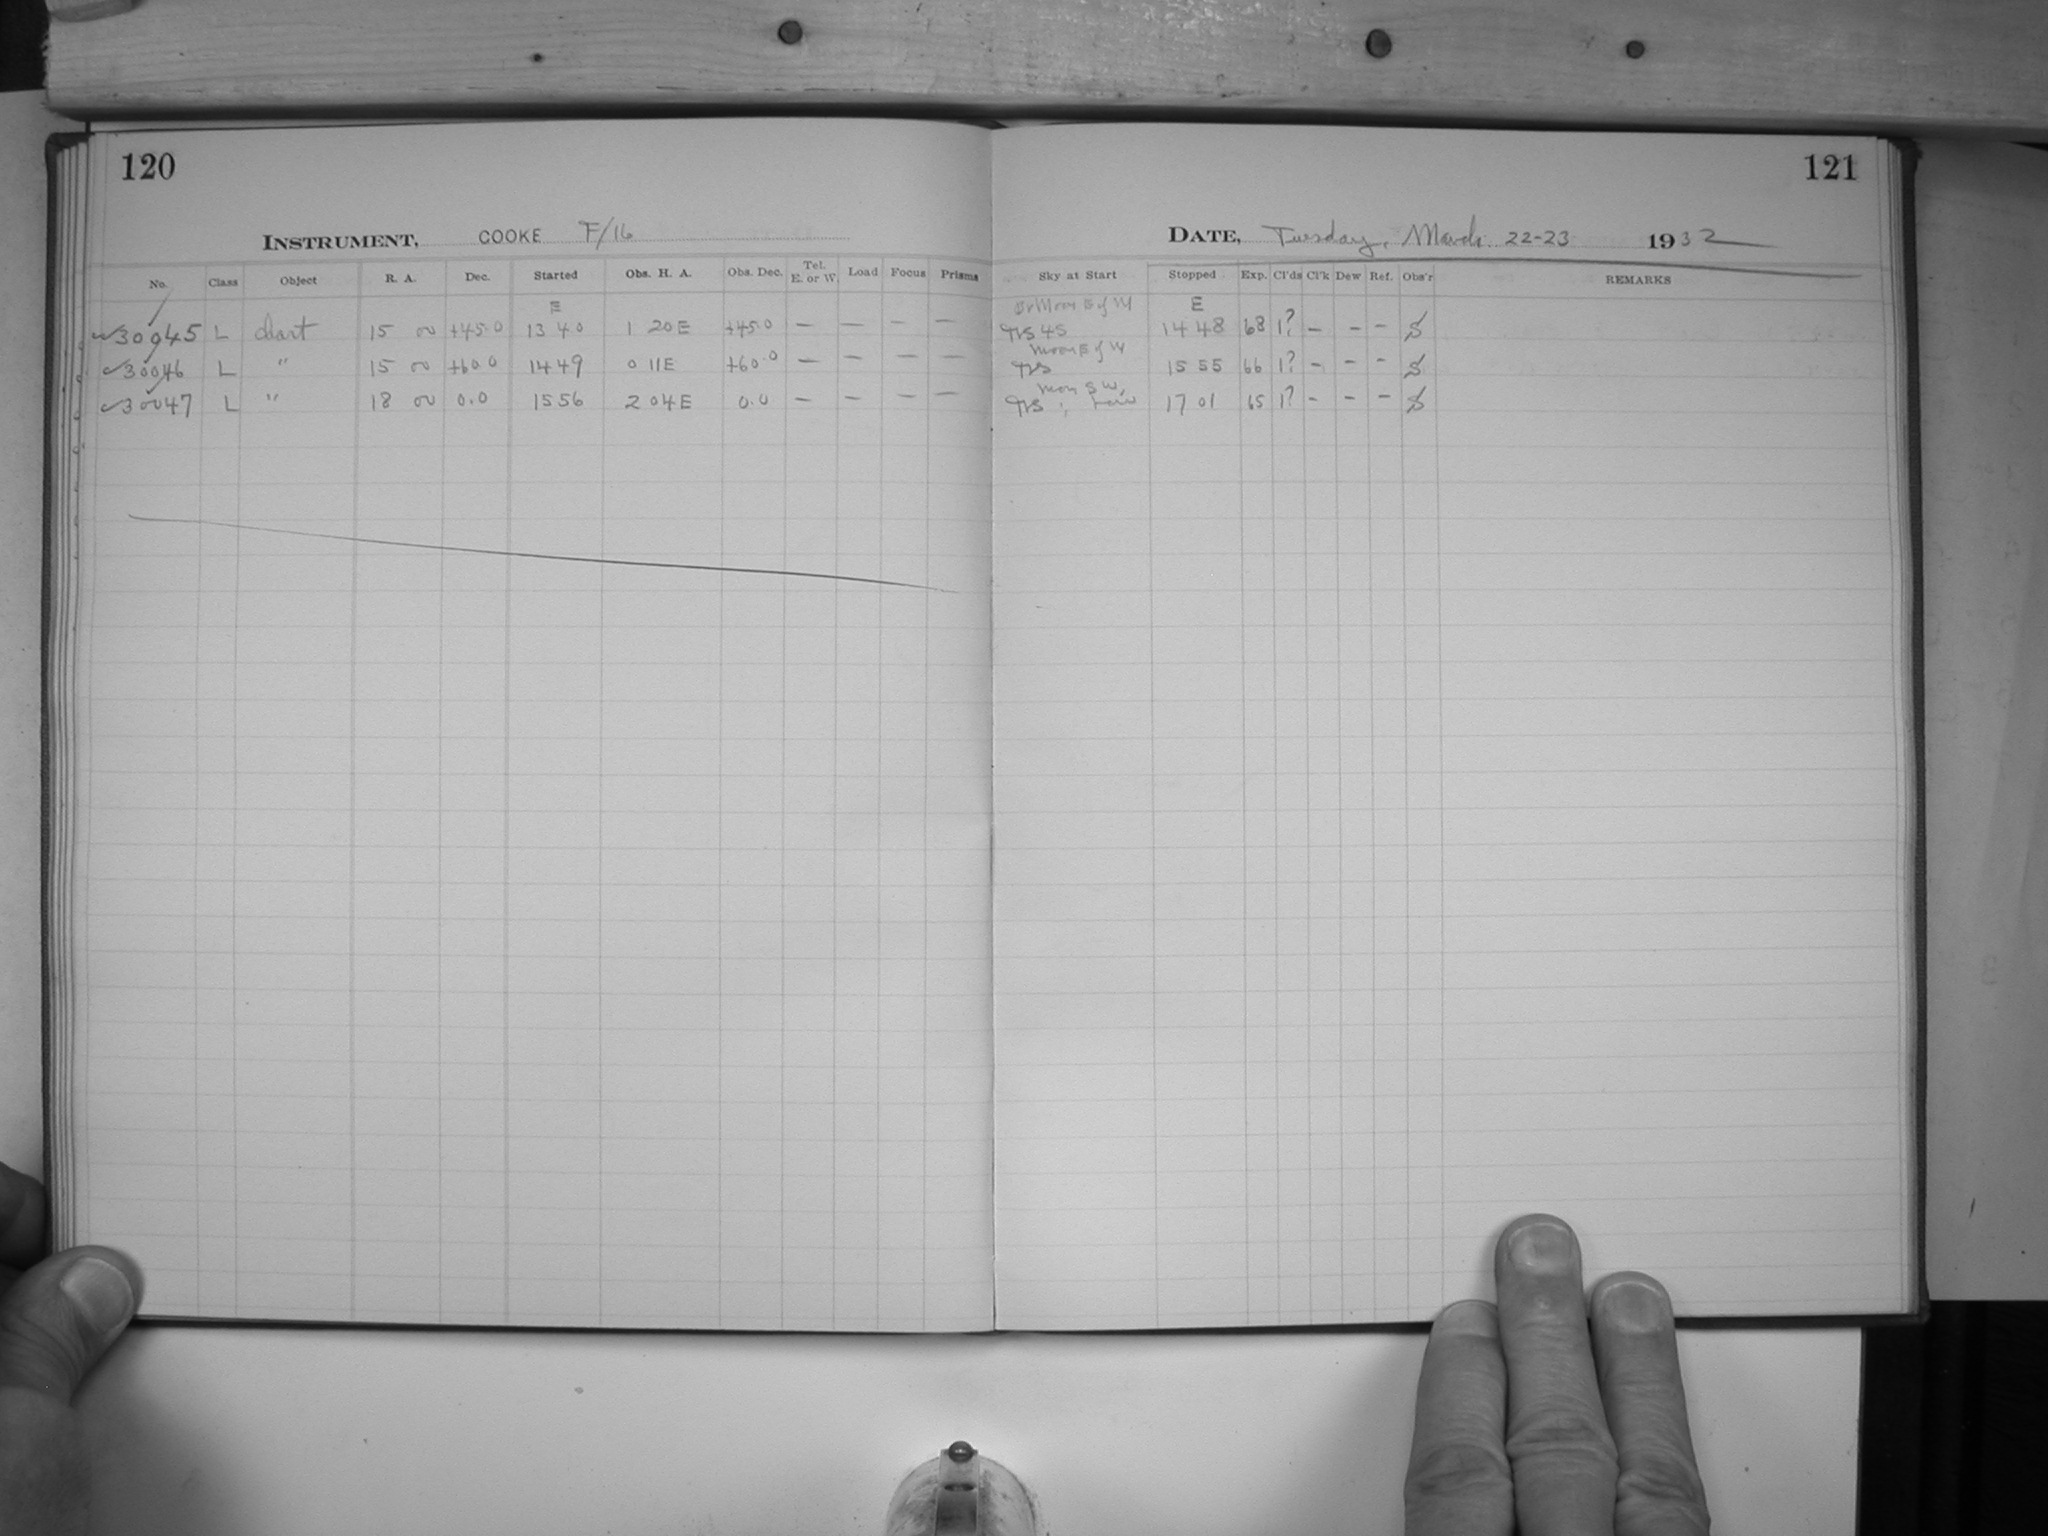 120
121
INSTRUMENT, COOKE F/16
DATE, Tuesday, March 22-23 1932
No. Class Object R. A. Dec. Started Obs. H. A. Obs. Dec. Tel. E. or W. Load Focus Prisms Sky at Start Stopped Exp. Cl'ds Cl'k Dew Ref. Obs'r REMARKS
E Br Moon E of M E
30045 L chart 15 00 +45.0 13 40 1 20E +45.0 — — — — 45 14 48 68 1? – – –
Moon E of M
30046 L " 15 00 +60.0 14 49 0 11E +60.0 — – – — 15 55 66 1? – – –
Moon S W,
30047 L " 18 00 0.0 15 56 2 04E 0.0 – – – — 17 01 65 1? – – –